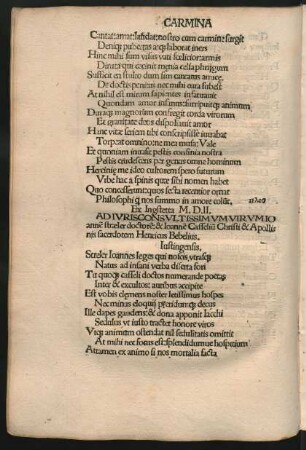 CARMINA
Cantat: amat: laudat: nostro cum carmine surgit
Deniqʒ pubertas atqʒ laborat iners
Hinc mihi sum visus vati sceleratior armis
Diuitēs qui exiuit mœnia celsa phrigum
Sufficit en stulto dum sim cantatus amore
De doctis penitus nec mihi cura subest
At nihil est miserum sapientes infatuauit
Quondam amor insanus surripuitqʒ animum
Diuitaqʒ magnorum confregit corda virorum
Et grauitate deos dispoliauit amor
Hunc vitæ seriem tibi conscripsisse iuuabat
Torpeat omnino ne mea musa: Vale
Et quoniam inuasit pestis confinia nostra
Pestis crudescens per genus omne hominum
Hercinię me ideo cultorem spero futurum
Vrbe hac a spinis quæ sibi nomen habet
Quo concessserunt quos secta recentior ornat
Philosophi qʒ nos summo in amore colūt,
Ex Ingolsteta M. D. II.
AD IVRISCONSVLTISSIMVM VIRVM IO
annē streler doctorē: & Ioannē Casseliū Christi & Apollinis sacerdotem Henricus Bebelius,
Iustingensis,
Streler Ioannes leges qui noscis, vtrasqʒ
Natus ad insani verba diserta fori
Tu quoqʒ casseli doctos numerande poetas
Inter & excultos: auribus accipite
Est vobis clemens noster letissimus hospes
Nec minus eloquij præditus atqʒ decus
Ille dapes gaudens: & dona apponit Iacchi
Sedulus vt iusto tractet honore viros
Vtqʒ animum ostendat nil sedulitatis omittit
At mihi nec focus est: splendidumue hospitium
Attamen ex animo si nos mortalia facta